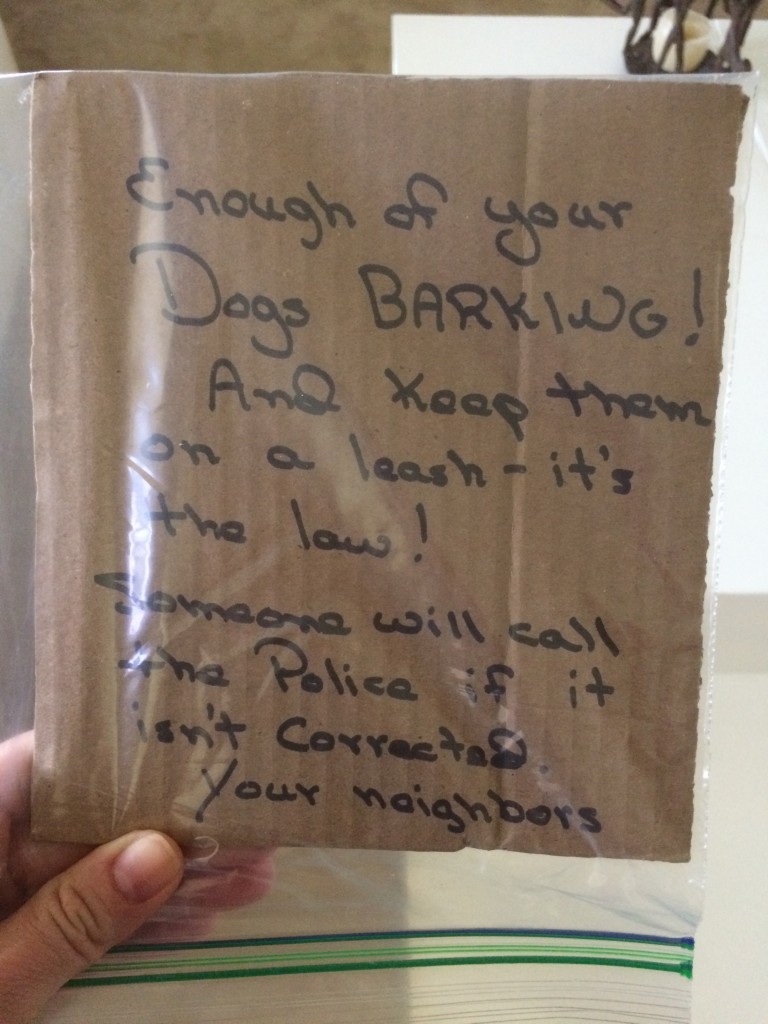 Enough of your
Dogs BARKING!
And Keep them
on a leash - it's
the law!
Someone will call
the Police if it
isn't Corrected.
Your neighbors